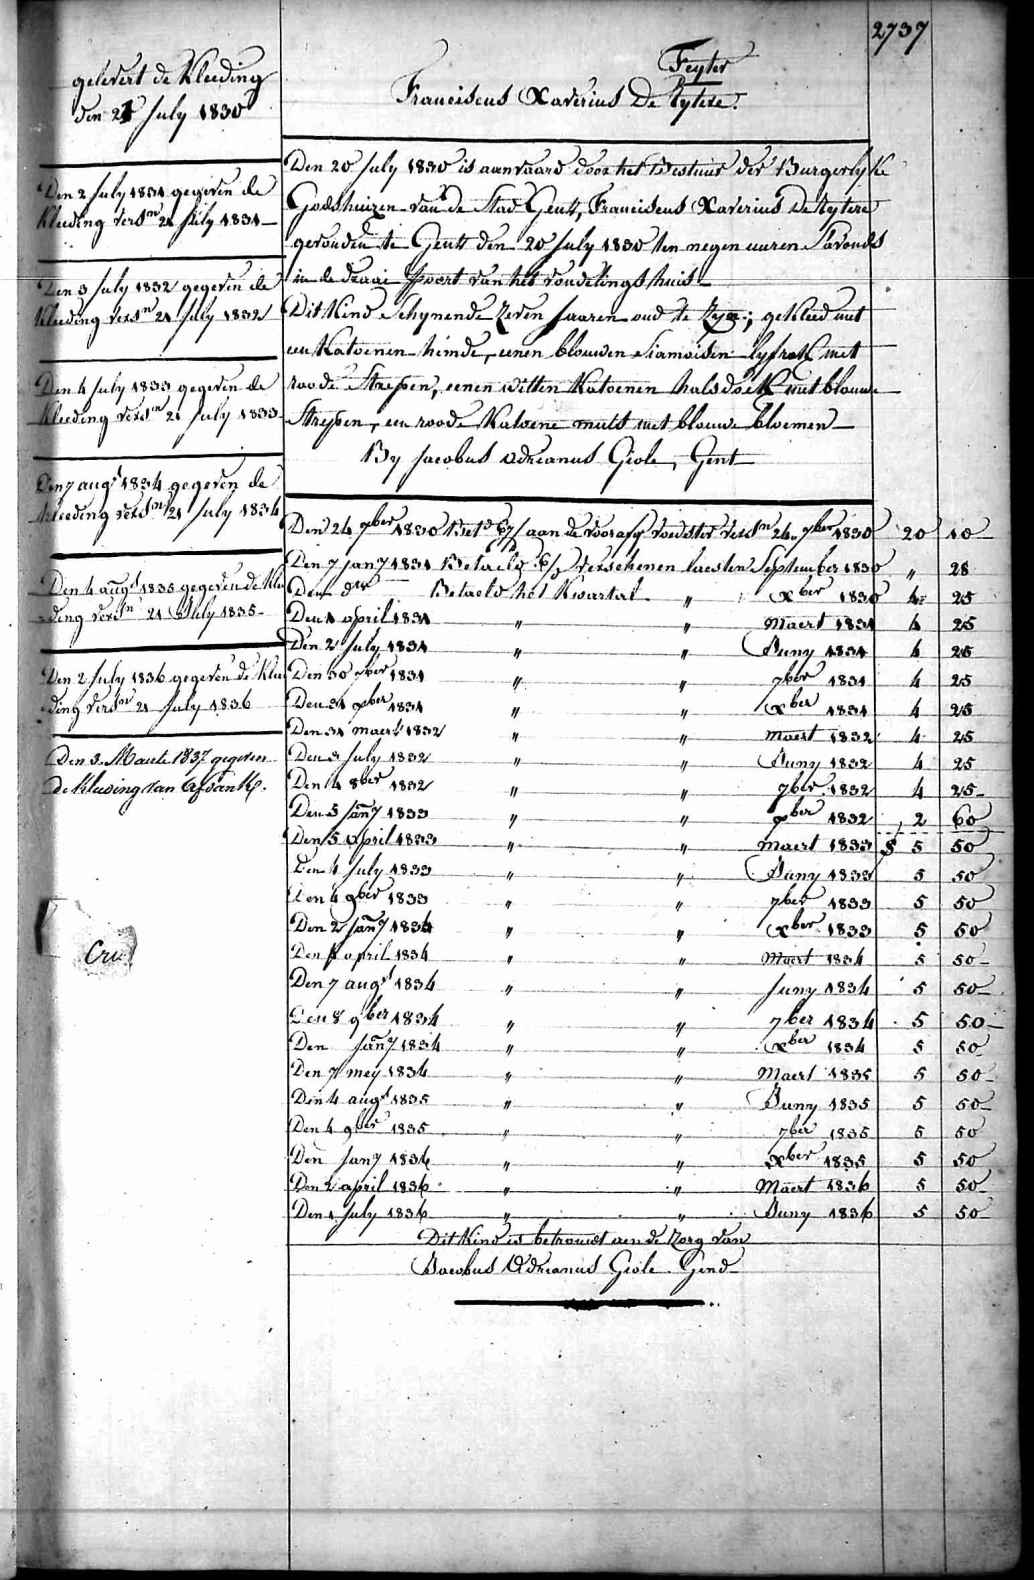 2737
gelevert de Kleeding
den 21 July 1830
Feyter
Franciscus Xaverius De Rytere.
Den 2 July 1831 gegeven de
Kleeding versn 21 July 1831
Den 3 July 1832 gegeven de
Kleeding versn 21 July 1832
Den 4 July 1833 gegeven de
Kleeding versn 21 July 1833
Den 7 augt 1834 gegeven de
Kleeding versn 21 July 1834
Den 4 augt 1835 gegeven de Klee
ding versn 21 July 1835
Den 2 July 1836 gegeven de Klee
ding versn 21 July 1836
Den 3. Maerte 1837 gegeven
de Kleeding van
Cru
Den 20 July 1830 is aanvaard door het Bestuur der Burgerlyke
Godshuizen van de Stad Gent, Franciscus Xaverius De Rytere
gevonden te Gent den 20 July 1830 ten negen uuren S'avonds
in de draai Poort van het vondelings huis
Dit Kind schynende zeven Jaaren oud te zyn; gekleed met
een Katoenen hemde, eenen blouwen Siamoisen lyfrok met
roode Strepen, eenen witten Katoenen halsdoek met blouwe
Strepen, een roode Katoene muts met blouwe bloemen
By Jacobus Adrianus Giole, Gent
Den 24 7ber 1830 Bet aan de voorafg voedster versn 24 7ber 1830 20 10
Den 7 jany 1831 Betaeld verschenen laesten September 1830 " 28
Den dto Betaeld het Kwartal " Xber 1830 4 25
Den 1 april 1831 " " Maert 1831 4 25
Den 2 July 1831 " " Juny 1831 4 25
Den 30 7ber 1831 " " 7ber 1831 4 25
Den 31 xber 1831 " " Xber 1831 4 25
Den 31 maert 1832 " " Maert 1832 4 25
Den 3 July 1832 " " Juny 1832 4 25
Den 4 8ber 1832 " " 7ber 1832 4 25
Den 5 Jany 1833 " " xber 1832 2 60
Den 5 April 1833 " " Maert 1833 5 5 50
Den 4 July 1833 " " Juny 1833 5 50
Den 4 9ber 1833 " " 7ber 1833 5 50
Den 2 Jany 1834 " " Xber 1833 5 50
Den 1 april 1834 " " Maert 1834 5 50
Den 7 augt 1834 " " Juny 1834 5 50
Den 8 9ber 1834 " " 7ber 1834 5 50
Den Jany 1834 " " Xber 1834 5 50
Den 7 mey 1834 " " Maert 1835 5 50
Den 4 augt 1835 " " Juny 1835 5 50
Den 4 9ber 1835 " " 7ber 1835 5 50
Den jany 1836 " " Xber 1835 5 50
Den 2 april 1836 " " Maert 1836 5 50
Den 1 July 1836 " " Juny 1836 5 50
Dit Kind is betrouwt aen de zorg van
Jacobus Adrianus Giole Gend